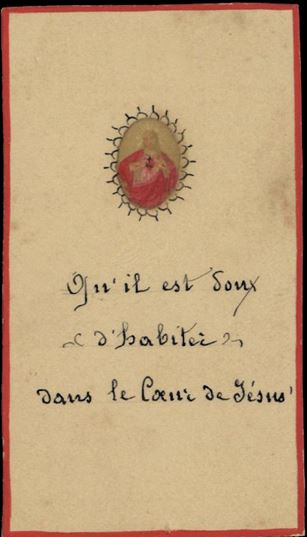 Qu'il est doux
d'habiter
dans le Cœur de Jésus